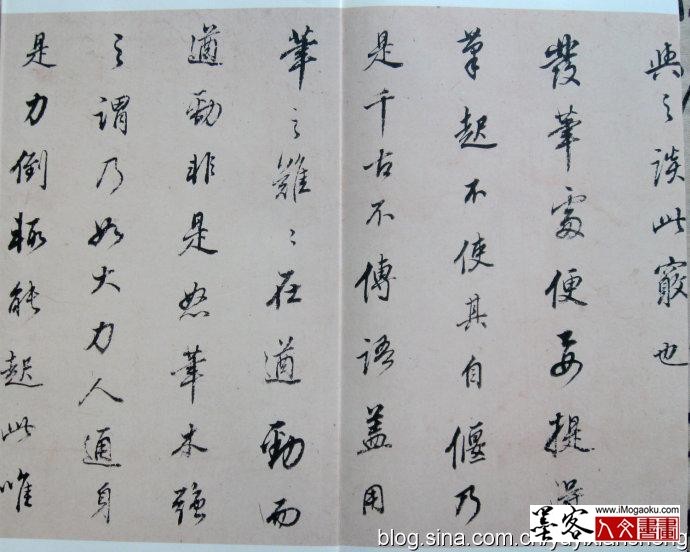 與之談此竅也
發筆處便要提得
筆起不使其自偃乃
是千古不傳語蓋用
筆之難〻在遒勁而
遒勁非是怒筆木強
之謂乃如大力人通身
是力倒輒能起此唯
www.iMogaoku.com
墨客人文書畫